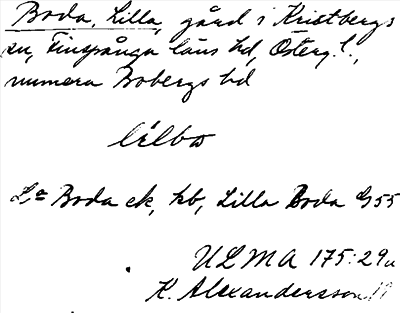 Boda, Lilla, gård i Kristbergs
sn, Finspånga läns hd, Österg.l.,
numera Bobergs hd
lílbo
La Boda ek, kb, Lilla Boda G55
ULMA 175:29a
K. Alexandersson